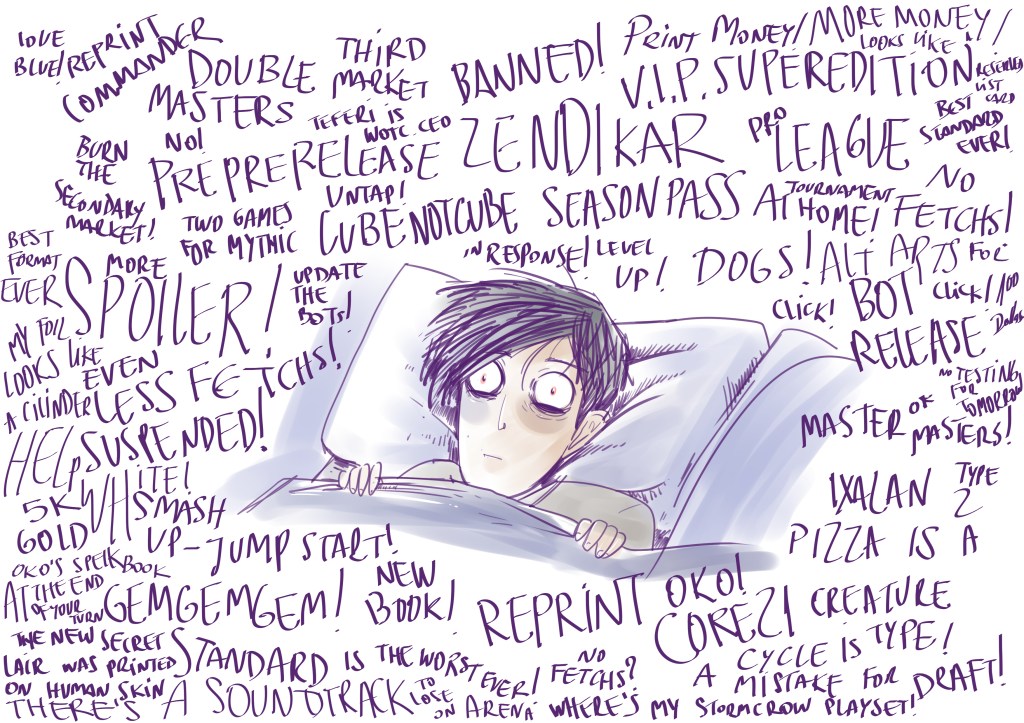 LOVE
BLUE!
REPRINT
COMMANDER
DOUBLE
MASTERS
THIRD
MARKET
BANNED!
PRINT MONEY/MORE MONEY/
LOOKS LIKE
V.I.P. SUPEREDITION
RESERVED
LIST
CARD
BEST
STANDARD
EVER!
BURN
THE
SECONDARY
MARKET!
NO!
PREPRERELEASE
TEFERI IS
WOTC CEO
ZENDIKAR
PRO
LEAGUE
UNTAP!
TWO GAMES
FOR MYTHIC
CUBENOTCUBE
SEASON PASS
AT TOURNAMENT
HOME!
NO
FETCHS!
BEST
FORMAT
EVER
MORE
SPOILER!
UPDATE
THE
BOTS!
IN RESPONSE!
LEVEL
UP!
DOGS!
ALT ARTS FOR
CLICK! BOT CLICK!
RELEASE
MY FOIL
LOOKS LIKE
A CILINDER
EVEN
LESS FETCHS!
NO TESTING
FOR
TOMORROW
MASTER OF
MASTERS!
HELP
SUSPENDED!
WHITE!
5K
GOLD
SMASH
UP-JUMP START!
IXALAN
TYPE
2
PIZZA IS A
CREATURE
TYPE!
OKO'S SPELKBOOK
AT THE END
OF YOUR
TURN
GEMGEMGEM!
NEW
BOOK!
REPRINT OKO!
CORE21
THE NEW SECRET
LAIR WAS PRINTED
ON HUMAN SKIN
STANDARD IS THE WORST
EVER!
NO
FETCHS?
A CYCLE IS
A MISTAKE FOR
DRAFT!
THERE'S A SOUNDTRACK
TO
LOSE
ON ARENA
WHERE'S MY STORMCROW PLAYSET!